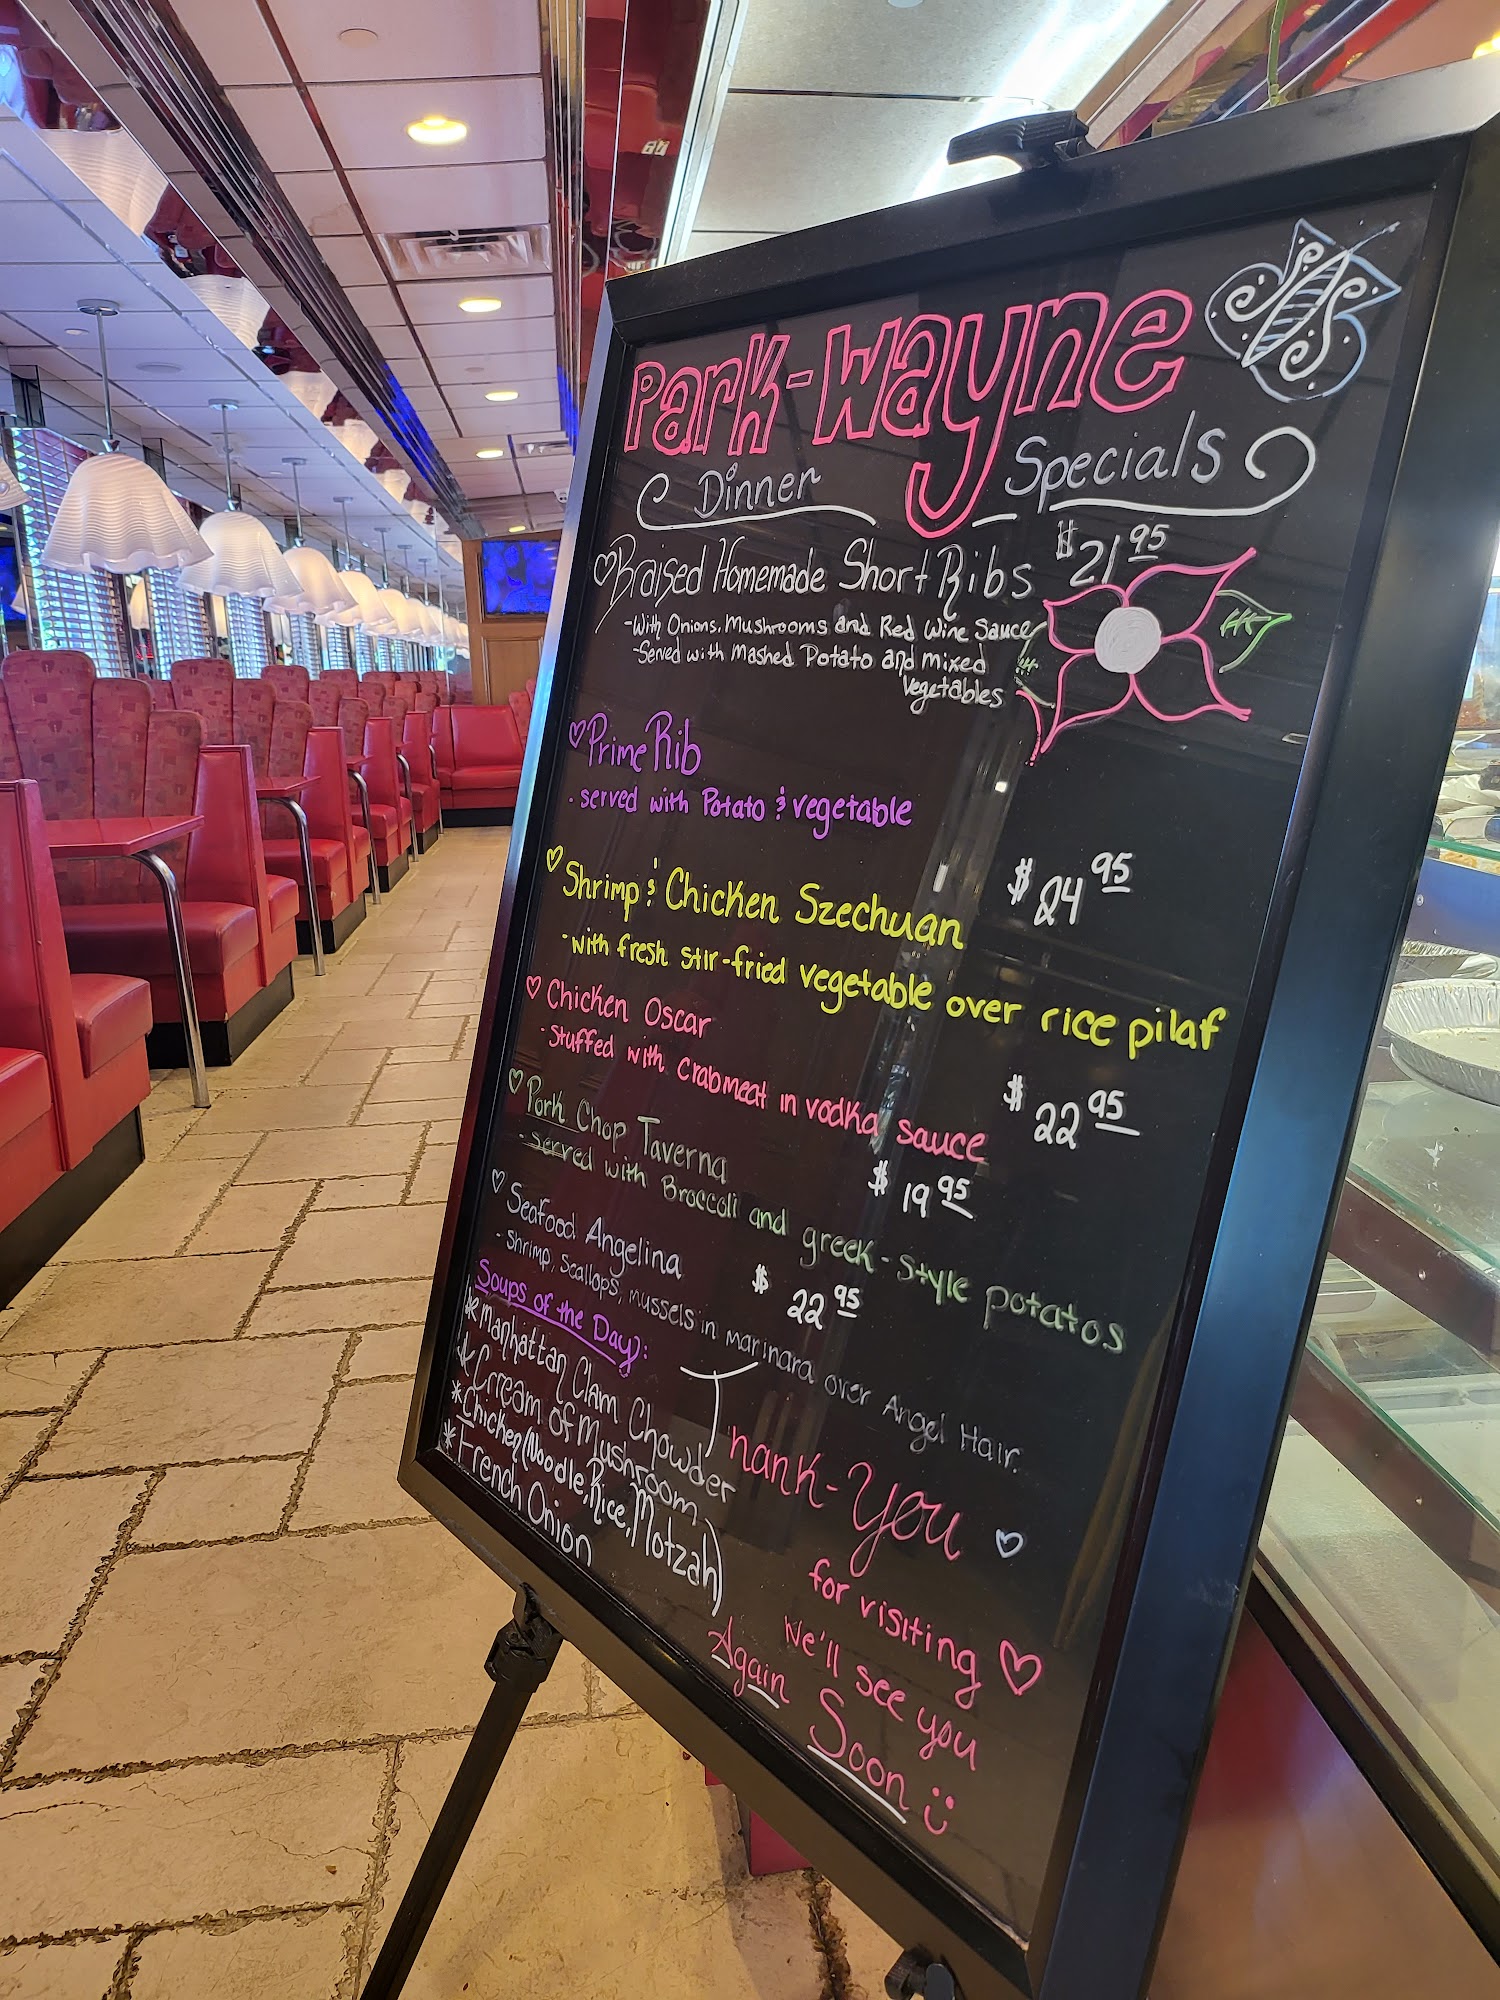 Park-Wayne
Dinner Specials
Braised Homemade Short Ribs $21 95
-With Onions, Mushrooms and Red Wine Sauce
-Served with Mashed Potato and mixed
vegetables
Prime Rib
- served with Potato & vegetable
Shrimp & Chicken Szechuan $24 95
-with fresh stir-fried vegetable over rice pilaf
Chicken Oscar
- Stuffed with Crabmeat in vodka sauce $22 95
Pork Chop Taverna $19 95
- served with Broccoli and greek-style potatos
Seafood Angelina $22 95
- Shrimp, Scallops, mussels in marinara over Angel Hair.
Soups of the Day:
*Manhattan Clam Chowder
*Crream of Mushroom
*Chicken (Noodle, Rice, Motzah)
*French Onion
Thank-You
for visiting
We'll see you
Again Soon